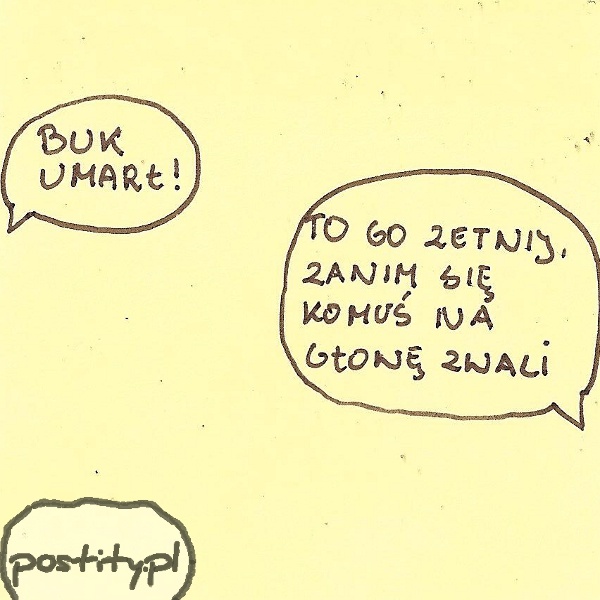 BUK
UMARŁ!
TO GO ZETNIJ,
ZANIM SIĘ
KOMUŚ NA
GŁOWĘ ZWALI
postity.pl